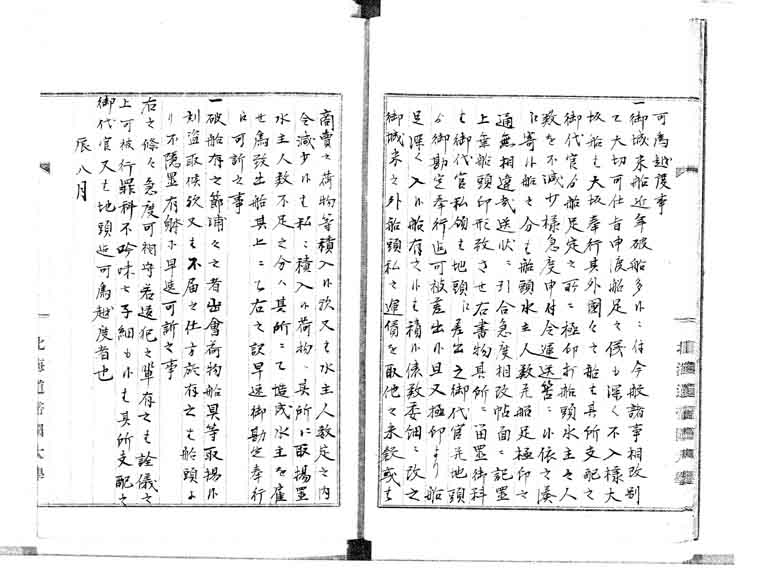 可為越度事
一御城米船近年破船多ホニ付今般諸事相改別
て大切可仕旨申渡船足之儀も深く不入様大
坂船も大坂奉行其外国々之船も其所支配之
御代官ゟ船足定之所ニ極印打船頭水主之人
数を不減少様急度申付令運送筈ニホ依之湊
ニ寄ホ船之分も船頭水主人数并船足極印之
通無相違哉送状ニ引合急度相改帖面ニ記置
上乗船頭印形致させ右書物其所ニ留置御料
も御代官私領も地頭ニ差出之御代官并地頭
ゟ御勘定奉行迄可被差出ホ且又極印より船
足深く入ホ船有之ホも積ホ俵数委細ニ改之
御城米之外船頭私之運賃を取他之米穀或も
商売之荷物等積入ホ欤又も水主人数定之内
令減少ホも私ニ積入ホ荷物ハ其所ニ取揚置
水主人数不足之分ハ其所ニて慥成水主を雇
せ為致出船其上ニて右之訳早速御勘定奉行
ニ可訴之事
一破船有之節浦々之者出会荷物船具等取揚ホ
刻盗取候欤又も不届之仕方於有之も船頭よ
り不隠置有躰ホ早速可訴之事
右之條々急度可相守若違犯之輩有之も詮儀之
上可被行罪科不吟味之子細もホも其所支配之
御代官又も地頭迄可為越度者也
辰八月
北海道帝国大学